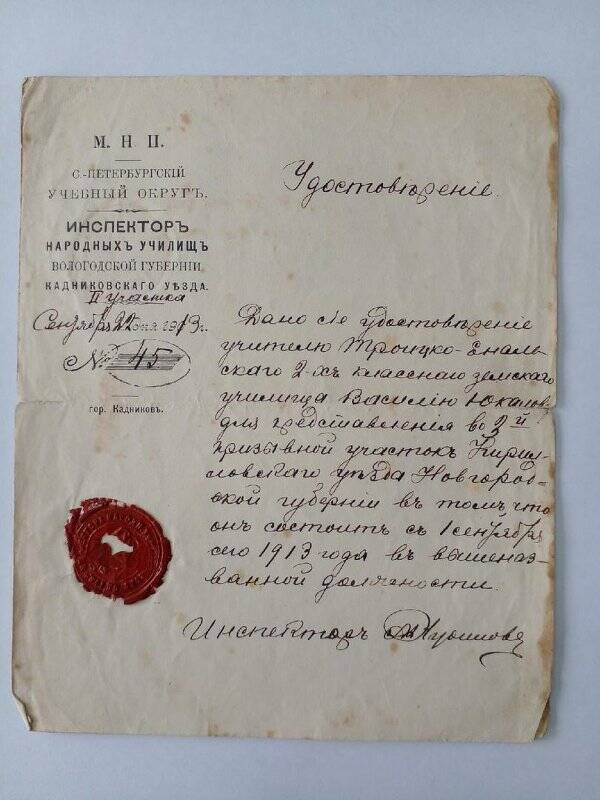 М. Н. П.
С.-ПЕТЕРБУРГСКІЙ
УЧЕБНЫЙ ОКРУГЪ.
ИНСПЕКТОРЪ
НАРОДНЫХЪ УЧИЛИЩЪ
ВОЛОГОДСКОЙ ГУБЕРНІИ
КАДНИКОВСКАГО УѢЗДА.
II участка
Сентября 22 дня 1913 г.
№ 45
гор. Кадниковъ.
Удостовѣреніе.
Дано сіе удостовѣреніе
учителю Троицко-Еналь-
скаго 2-хъ класснаго земскаго
училища Василію
для представленія во 2й
призывной участокъ Кирил-
ловскаго уѣзда Новгород-
ской губерніи въ томъ, что
онъ состоитъ съ 1 сентября
сего 1913 года въ вышеназ-
ванной должности.
Инспекторъ